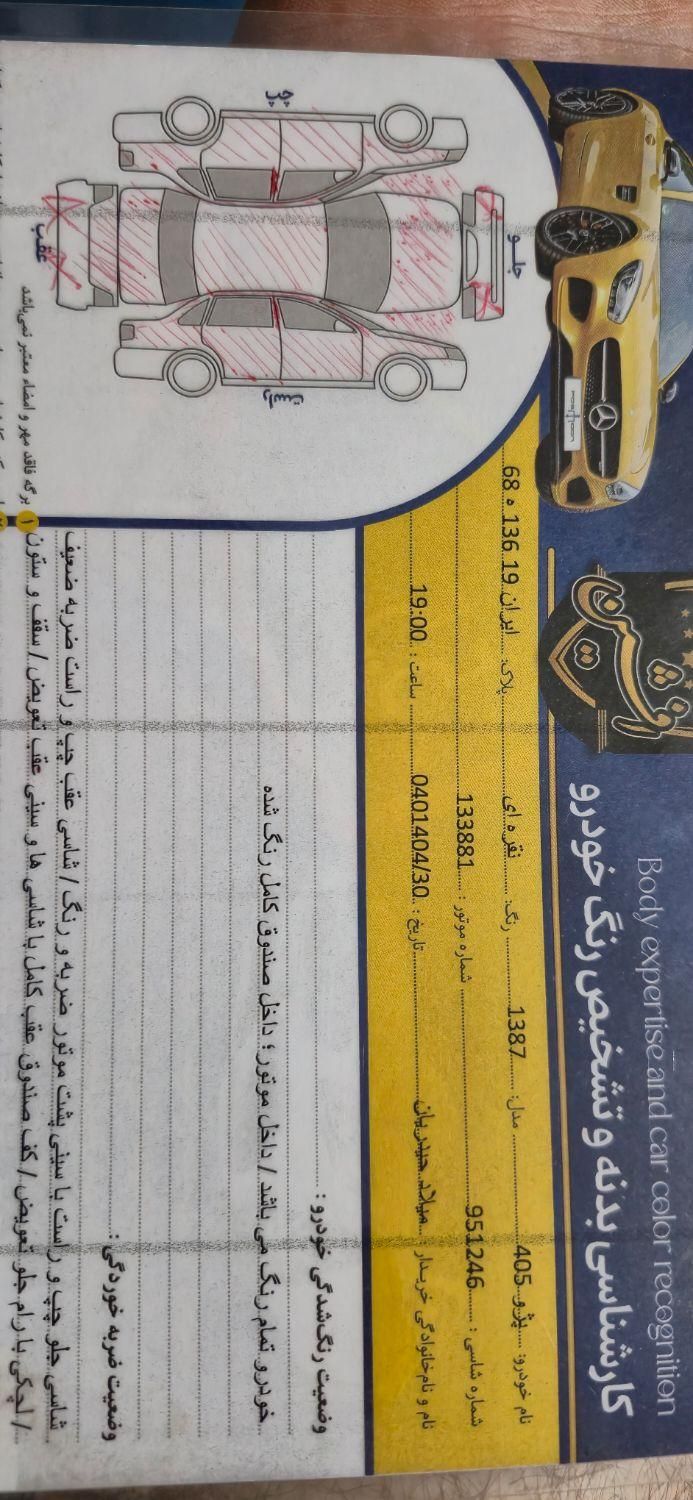 Body expertise and car color recognition
کارشناسی بدنه و تشخیص رنگ خودرو
نام خودرو: پژو 405 مدل: 1387 رنگ: نقره ای پلاک: ایران 19 136 ه 68
شماره شاسی: 951246 شماره موتور: 133881
نام و نام‌خانوادگی خریدار: میلاد حیدریان تاریخ: 0401404/30 ساعت: 19:00
وضعیت رنگ‌شدگی خودرو:
خودرو تمام رنگ می باشد / داخل موتور ؛ داخل صندوق کامل رنگ شده
وضعیت ضربه خوردگی:
شاسی جلو چپ و راست با سینی پشت موتور ضربه و رنگ / شاسی عقب چپ و راست ضربه ضعیف
/ لچکی با رام جلو تعویض / کف صندوق عقب کامل با شاسی ها و سینی عقب تعویض / سقف و ستون
چپ
جلو
عقب
راست
۱ برگه فاقد مهر و امضاء معتبر نمی‌باشد